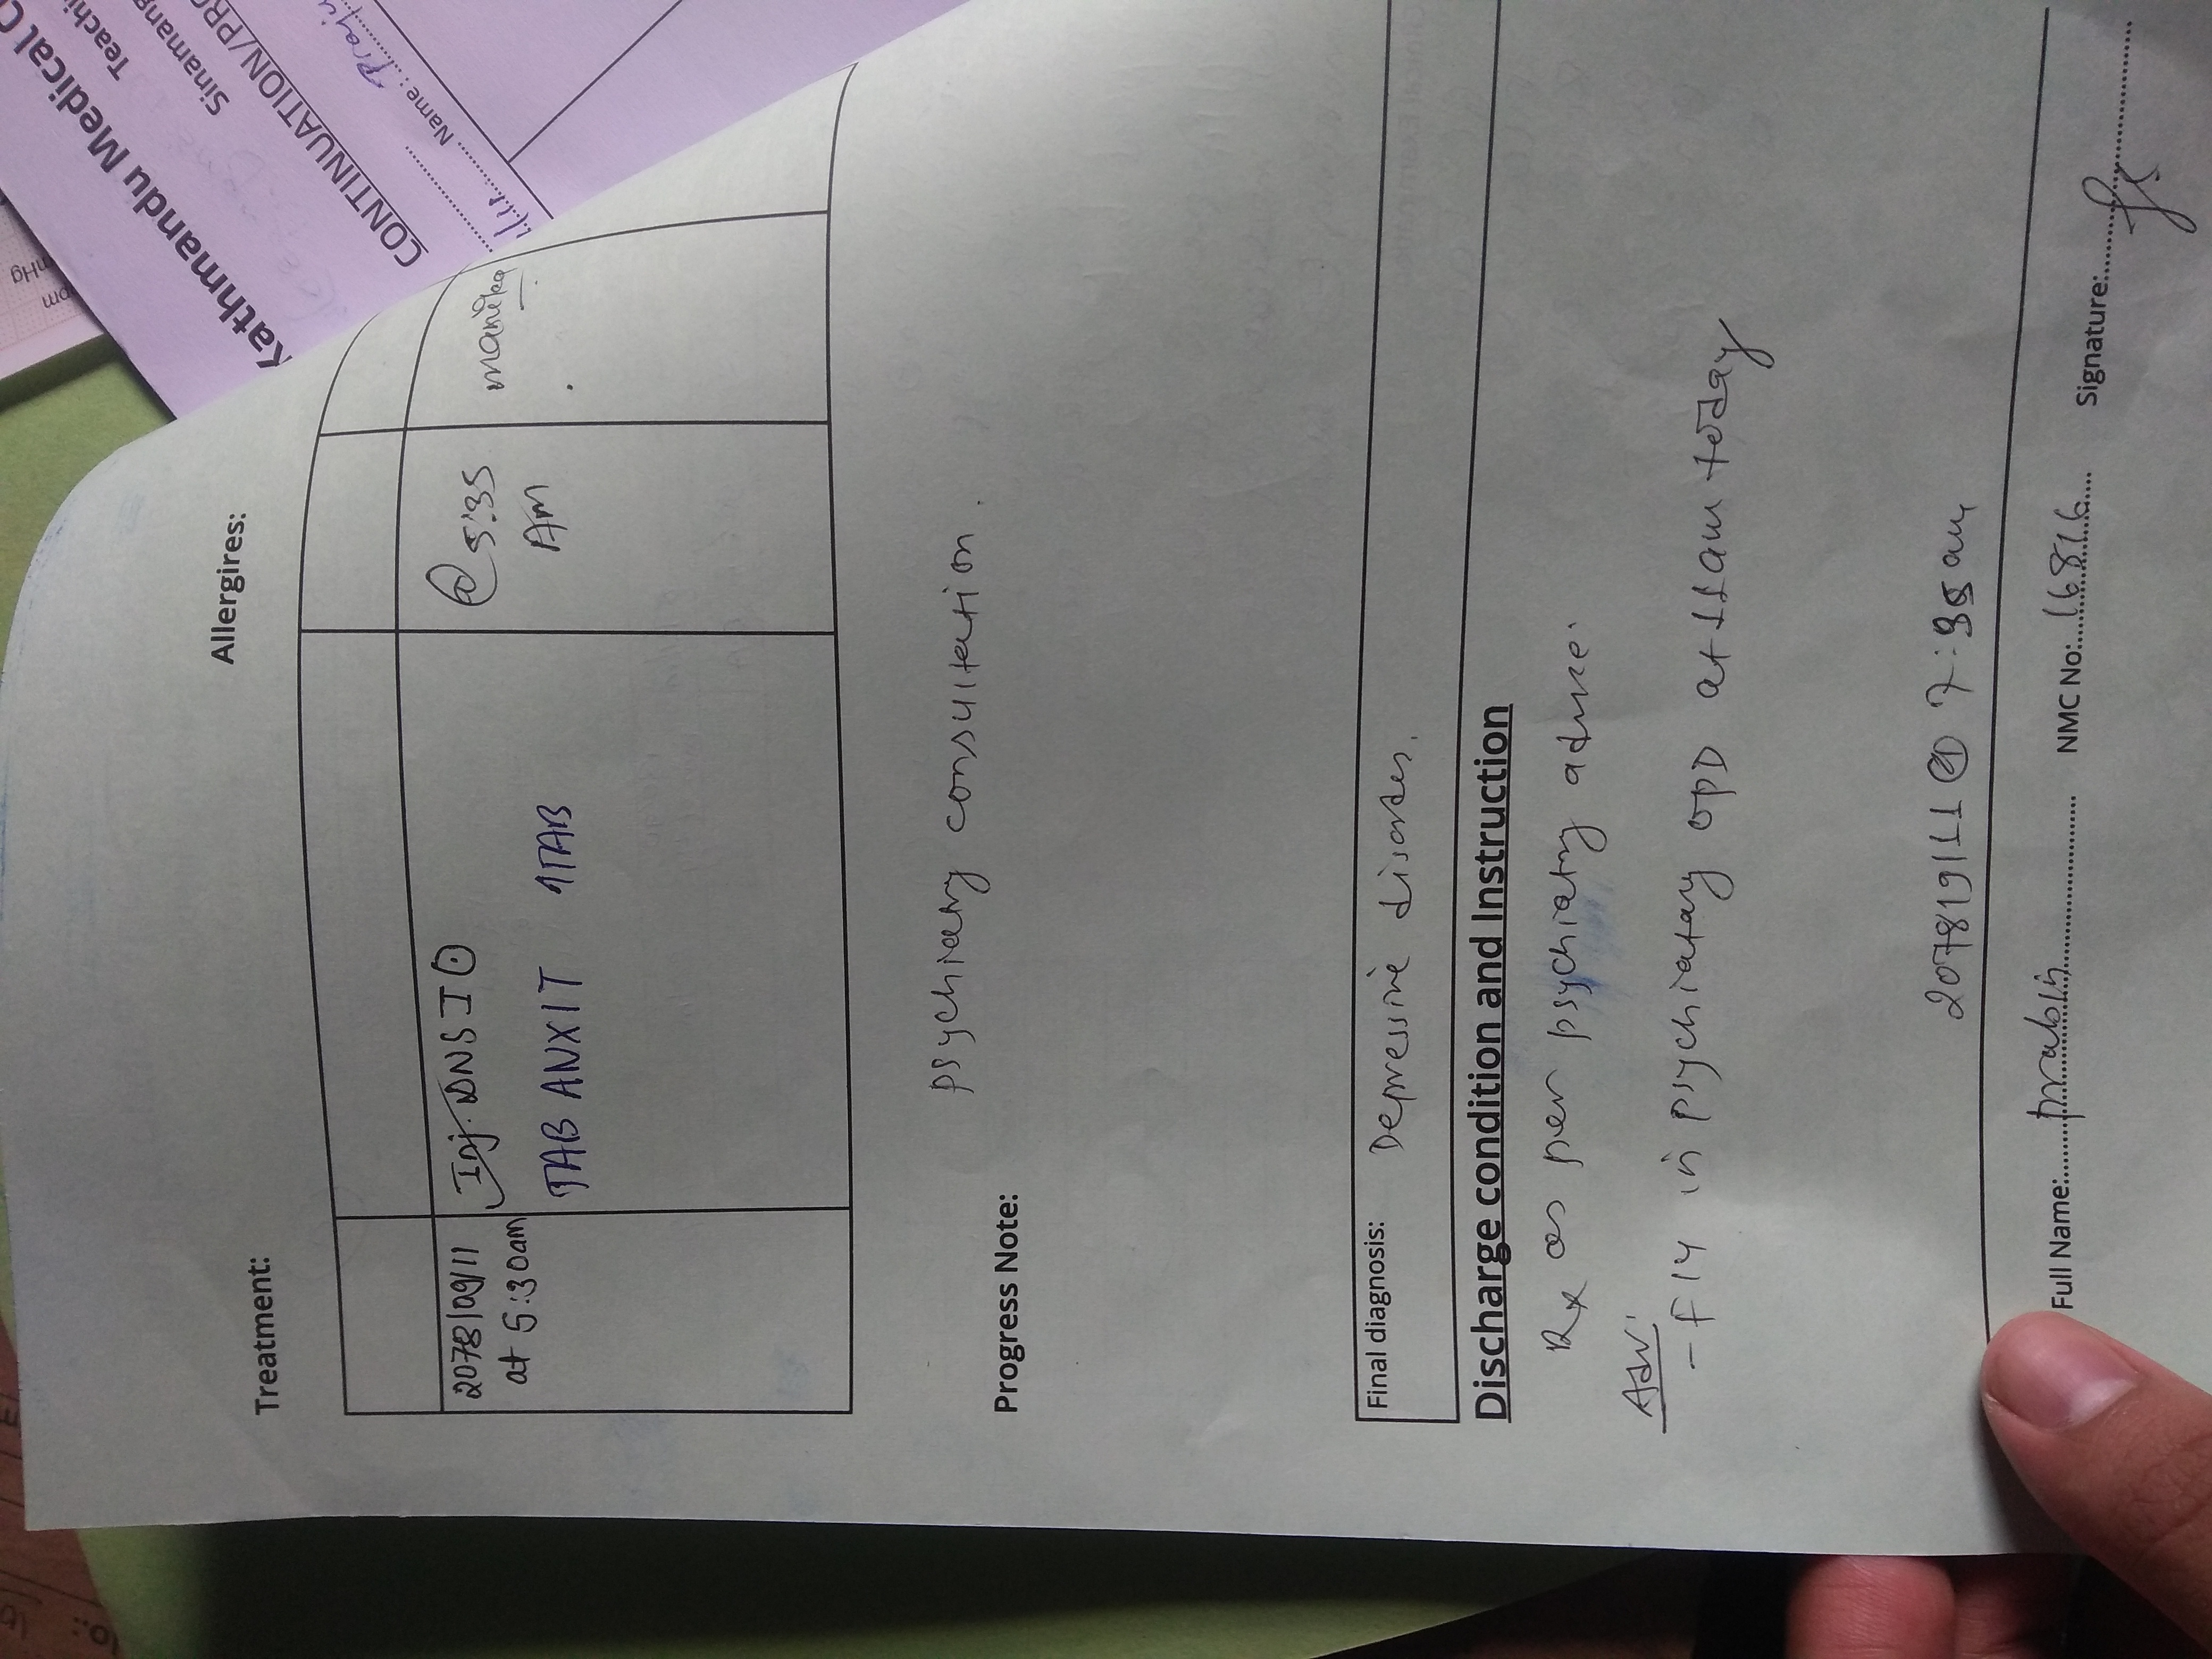 Treatment:
Allergires:
2078/09/11 Inj. DNS I @ 5:35 manika
at 5:30am AM
TAB ANXIT 1TAB
Progress Note:
psychiatry consultation.
Final diagnosis: Depressive disorder.
Discharge condition and Instruction
Rx as per psychiatry advice.
Adv.
- F/U in psychiatary OPD at 11am today
2078/9/11 @ 7:35am
Full Name: prabin NMC No: 16816 Signature:
Kathmandu Medical C
Teachi
Sinamang
CONTINUATION/PRO
Name :
No.:
pm
mHg